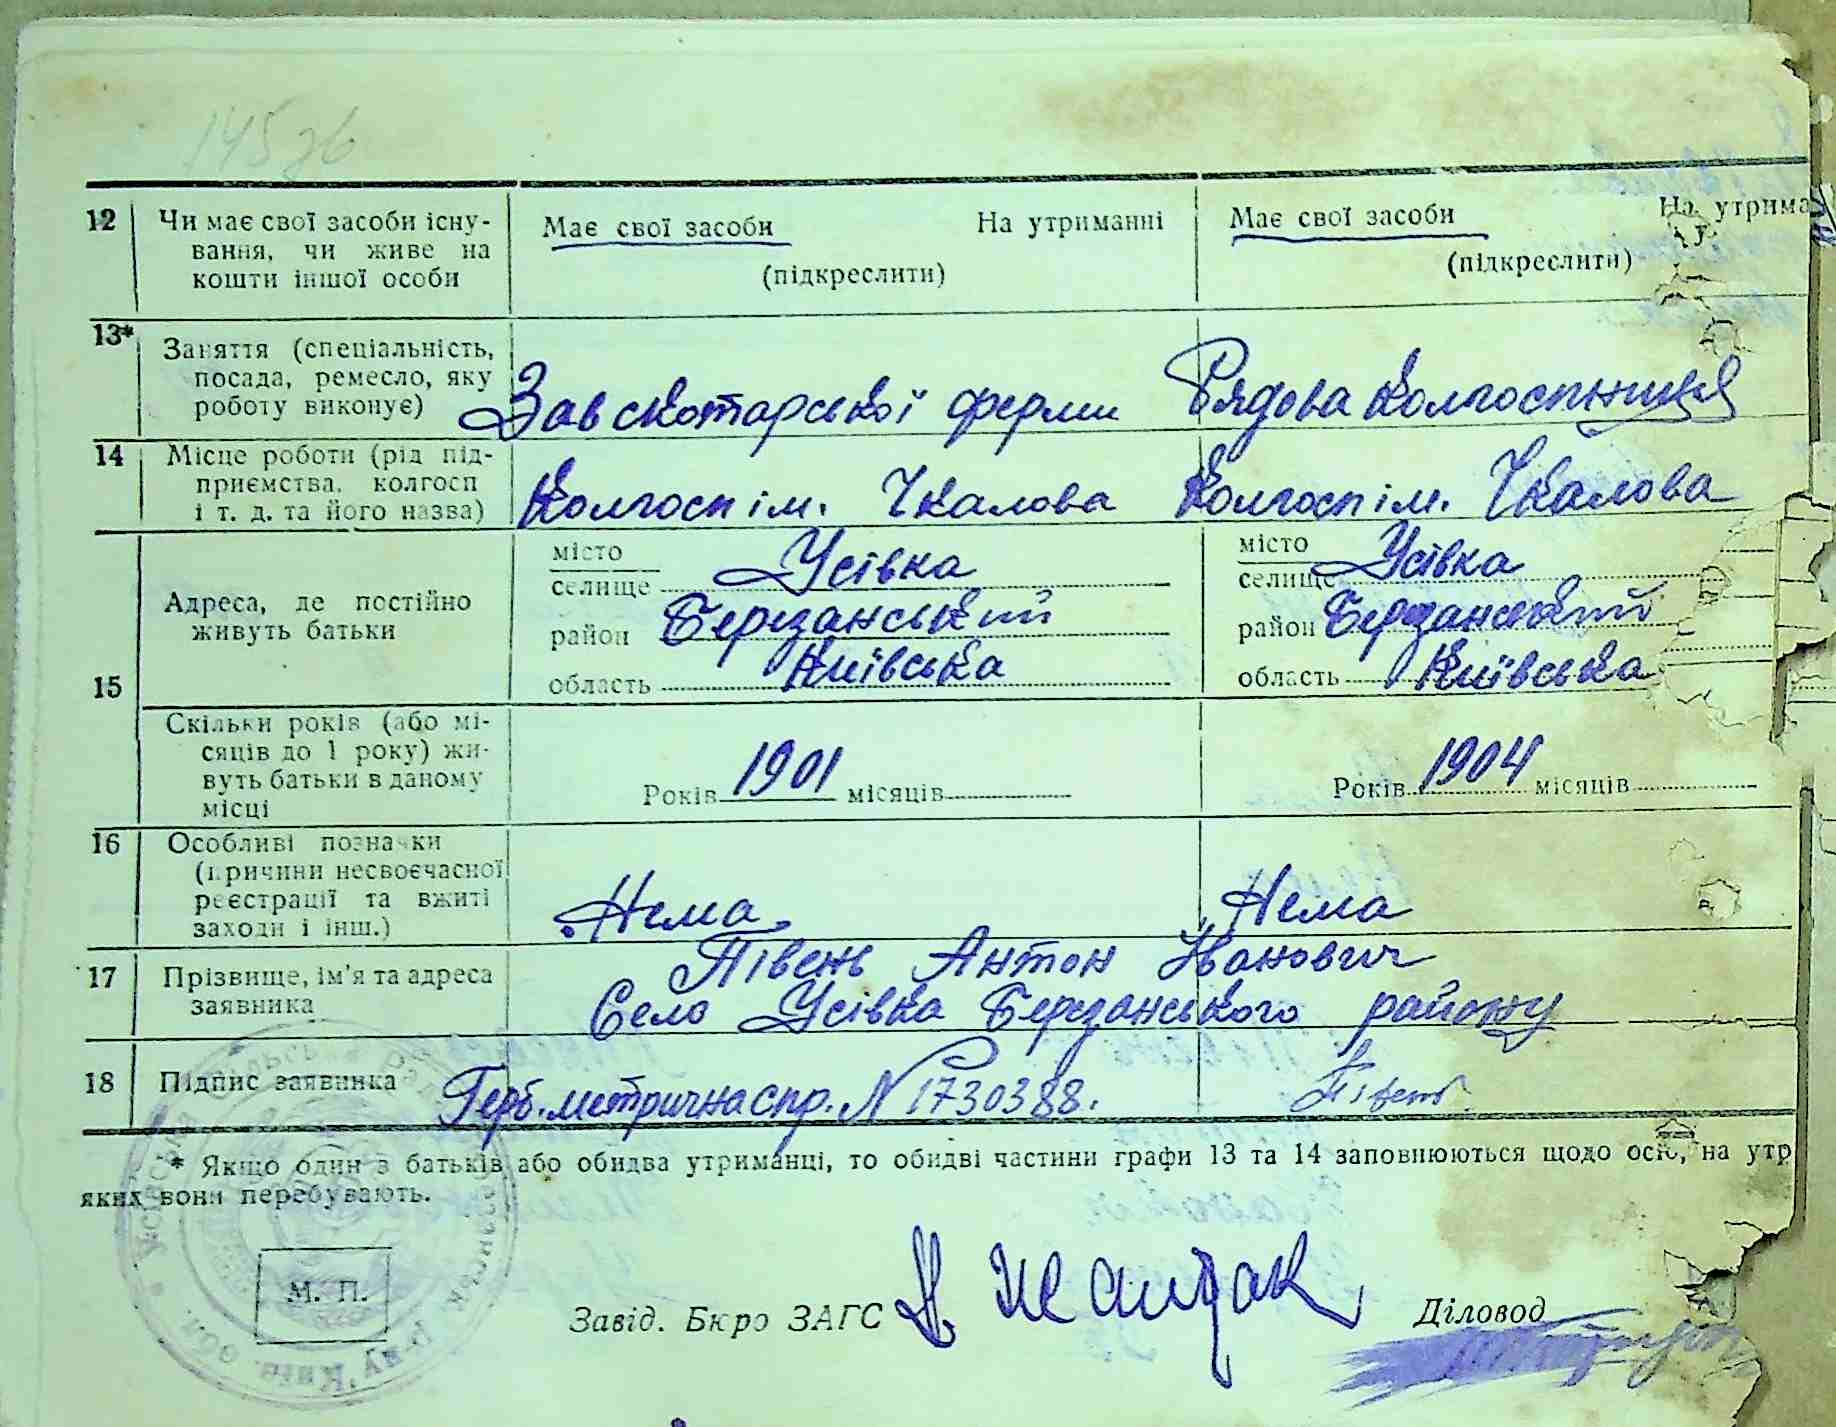 145зв
12 Чи має свої засоби існу-
вання, чи живе на
кошти іншої особи
Має свої засоби На утриманні
(підкреслити)
Має свої засоби На утрима
(підкреслити)
13* Заняття (спеціальність,
посада, ремесло, яку
роботу виконує)
Зав скотарської ферми Рядова колгоспниця
14 Місце роботи (рід під-
приємства, колгосп
і т. д. та його назва)
Колгосп ім. Чкалова Колгосп ім. Чкалова
15 Адреса, де постійно
живуть батьки
місто
селище Усівка
район Березанський
область Київська
місто
селище Усівка
район Березанський
область Київська
Скільки років (або мі-
сяців до 1 року) жи-
вуть батьки в даному
місці
Років 1901 місяців
Років 1904 місяців
16 Особливі позначки
(причини несвоєчасної
реєстрації та вжиті
заходи і інш.)
Нема Нема
17 Прізвище, ім'я та адреса
заявника
Півень Антон Іванович
Село Усівка Березанського району
18 Підпис заявника
Герб. метрична спр. N 1730388. Півень
* Якщо один з батьків або обидва утриманці, то обидві частини графи 13 та 14 заповнюються щодо осіб, на утр
яких вони перебувають.
М. П.
Завід. Бюро ЗАГС
Діловод